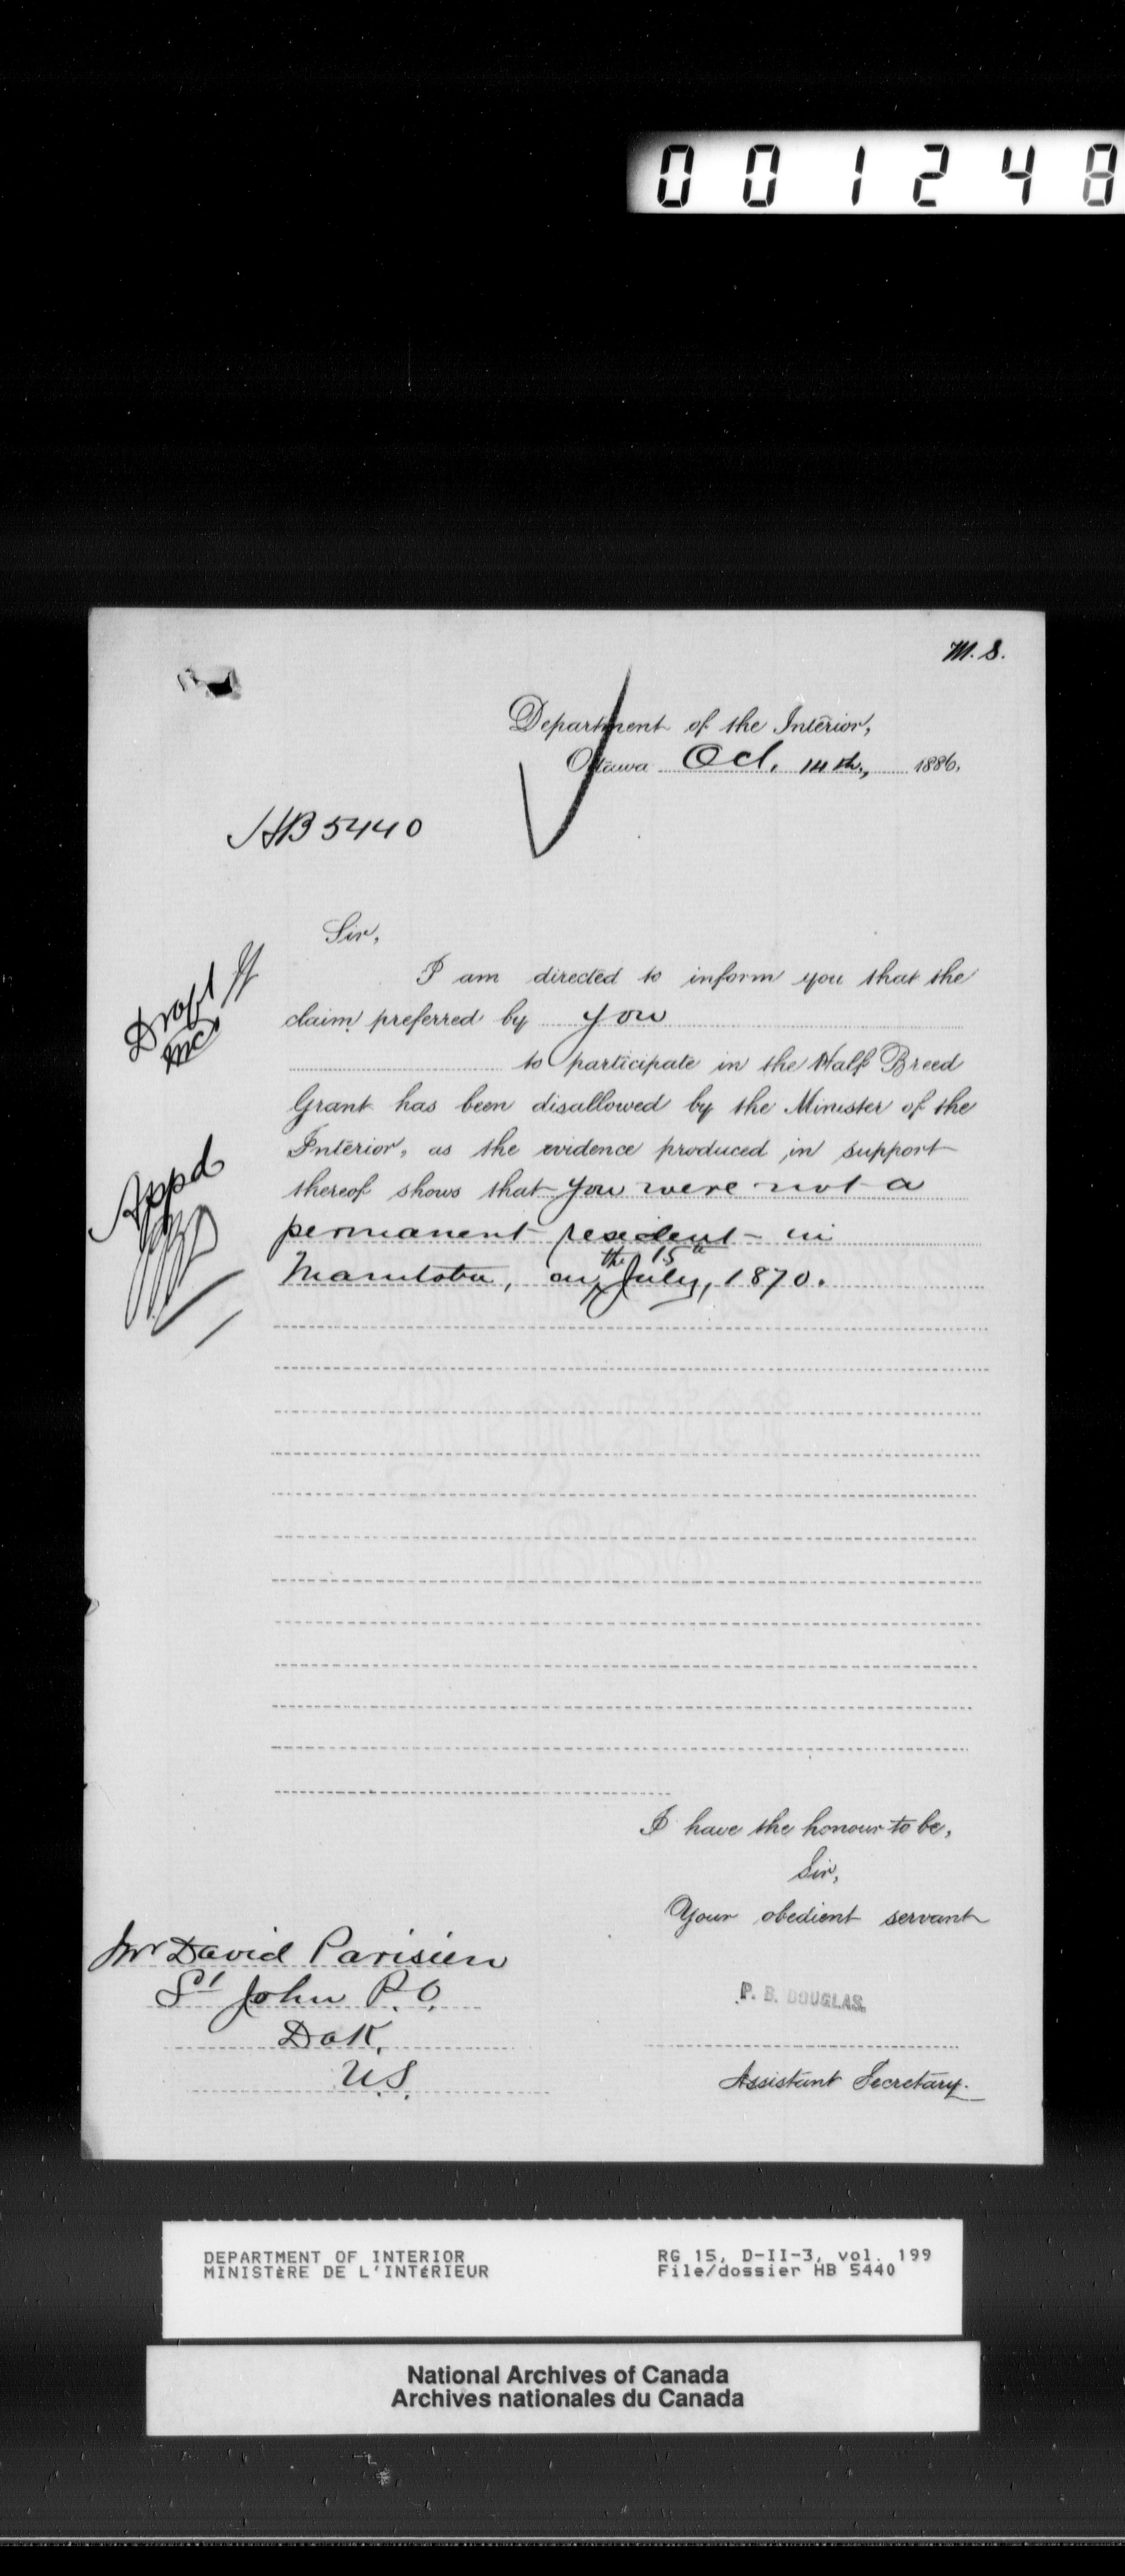 001248
M.S.
Department of the Interior,
Ottawa Oct. 14th, 1886.
HB 5440
Sir,
I am directed to inform you that the
claim preferred by you
to participate in the Half Breed
Grant has been disallowed by the Minister of the
Interior, as the evidence produced in support
thereof shows that you were not a
permanent resident in
Manitoba, on the 15th July, 1870.
Draft
Appd
I have the honour to be,
Sir,
Your obedient servant
P. B. DOUGLAS.
Assistant Secretary.
Mr David Parisien
St John P.O.
Dak.
U.S.
DEPARTMENT OF INTERIOR
MINISTÈRE DE L'INTÉRIEUR
RG 15, D-II-3, vol. 199
File/dossier HB 5440
National Archives of Canada
Archives nationales du Canada